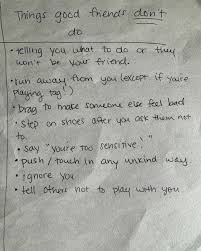 Things good friends don't
do
• telling you what to do or they
won't be your friend.
• run away from you (except if you're
playing tag!)
• brag to make someone else feel bad
• step on shoes after you ask them not
to.
• say "you're too sensitive!"
• push / touch in any unkind way.
• ignore you
• tell others not to play with you